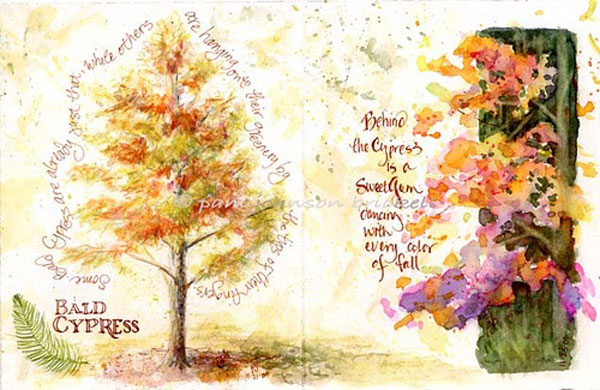 Some Bald Cypress are already past that while others are hanging onto their greenery by the tips of their fingers
BALD
CYPRESS
Behind
the Cypress
is a
Sweet Gum
dancing
with
every color
of fall
© pam johnson brickell